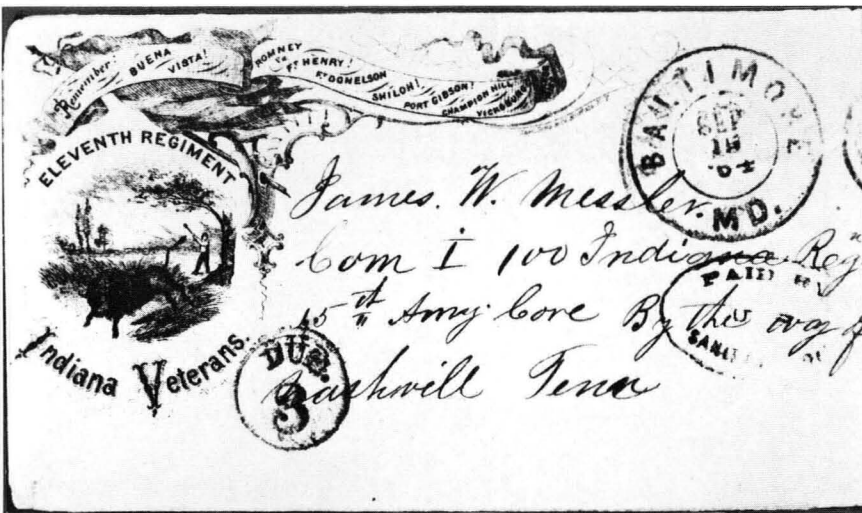 Remember! BUENA VISTA!
ROMNEY Va
FT HENRY!
FT DONNELSON
SHILOH!
PORT GIBSON!
CHAMPION HILL
VICKSBURG
ELEVENTH REGIMENT
Indiana Veterans.
BALTIMORE MD.
SEP
64
James. W. Messler.
Com I 100 Indiana Reg
15th Amy. Core By the way of
Nashvill Tenn
PAID BY
DUE.
3